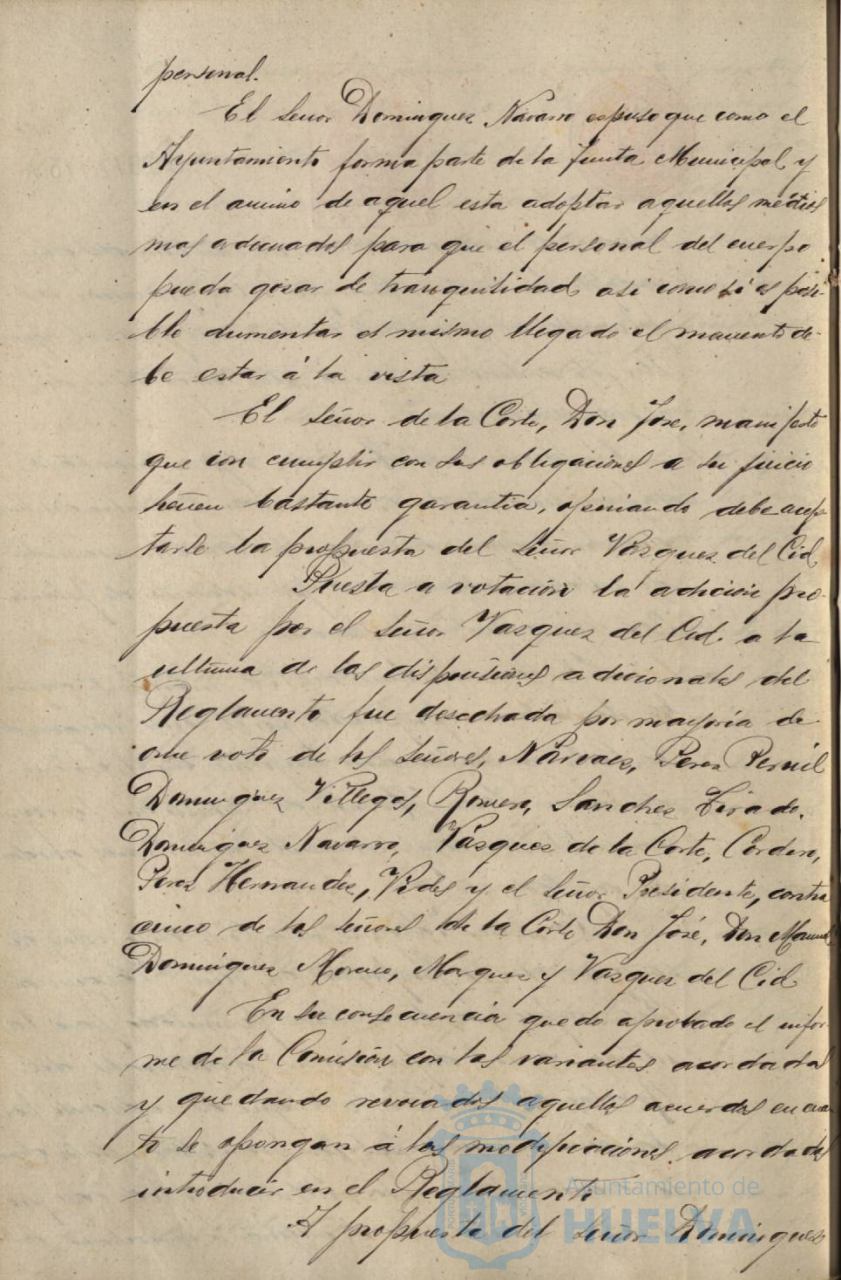 personal.
El Señor Dominguez Navarro espuso que como el
Ayuntamiento forma parte de la Junta Municipal y
en el animo de aquel esta adoptar aquellos medios
mas adecuados para que el personal del cuerpo
pueda gozar de tranquilidad asi como si es posi-
ble aumentar el mismo llegado el momento de-
be estar á la vista
El Señor de la Corte, Don Jose, manifesto
que con cumplir con sus obligaciones a su juicio
tienen bastante garantia, opinando debe acep-
tarse la propuesta del Señor Vazquez del Cid
Puesta a votación la adición pro-
puesta por el Señor Vazquez del Cid a la
ultima de las disposiciones adicionales del
Reglamento fue desechada por mayoria de
once votos de los Señores, Narvaez, Perez Pernil
Dominguez Villegas, Romero, Sanchez Tirado,
Dominguez Navarro, Vázquez de la Corte, Cordero,
Perez Hernandez, Vides y el Señor Presidente, contra
cinco de los Señores de la Corte Don José, Don Manuel,
Dominguez Moreno, Marquez y Vazquez del Cid
En su consecuencia quedo aprobado el infor-
me de la Comisión con las variantes acordadas
y quedando revocados aquellos acuerdos en cuan-
to se opongan á las modificaciones acordadas
introducir en el Reglamento
A propuesta del Señor Dominguez
Ayuntamiento de
HUELVA